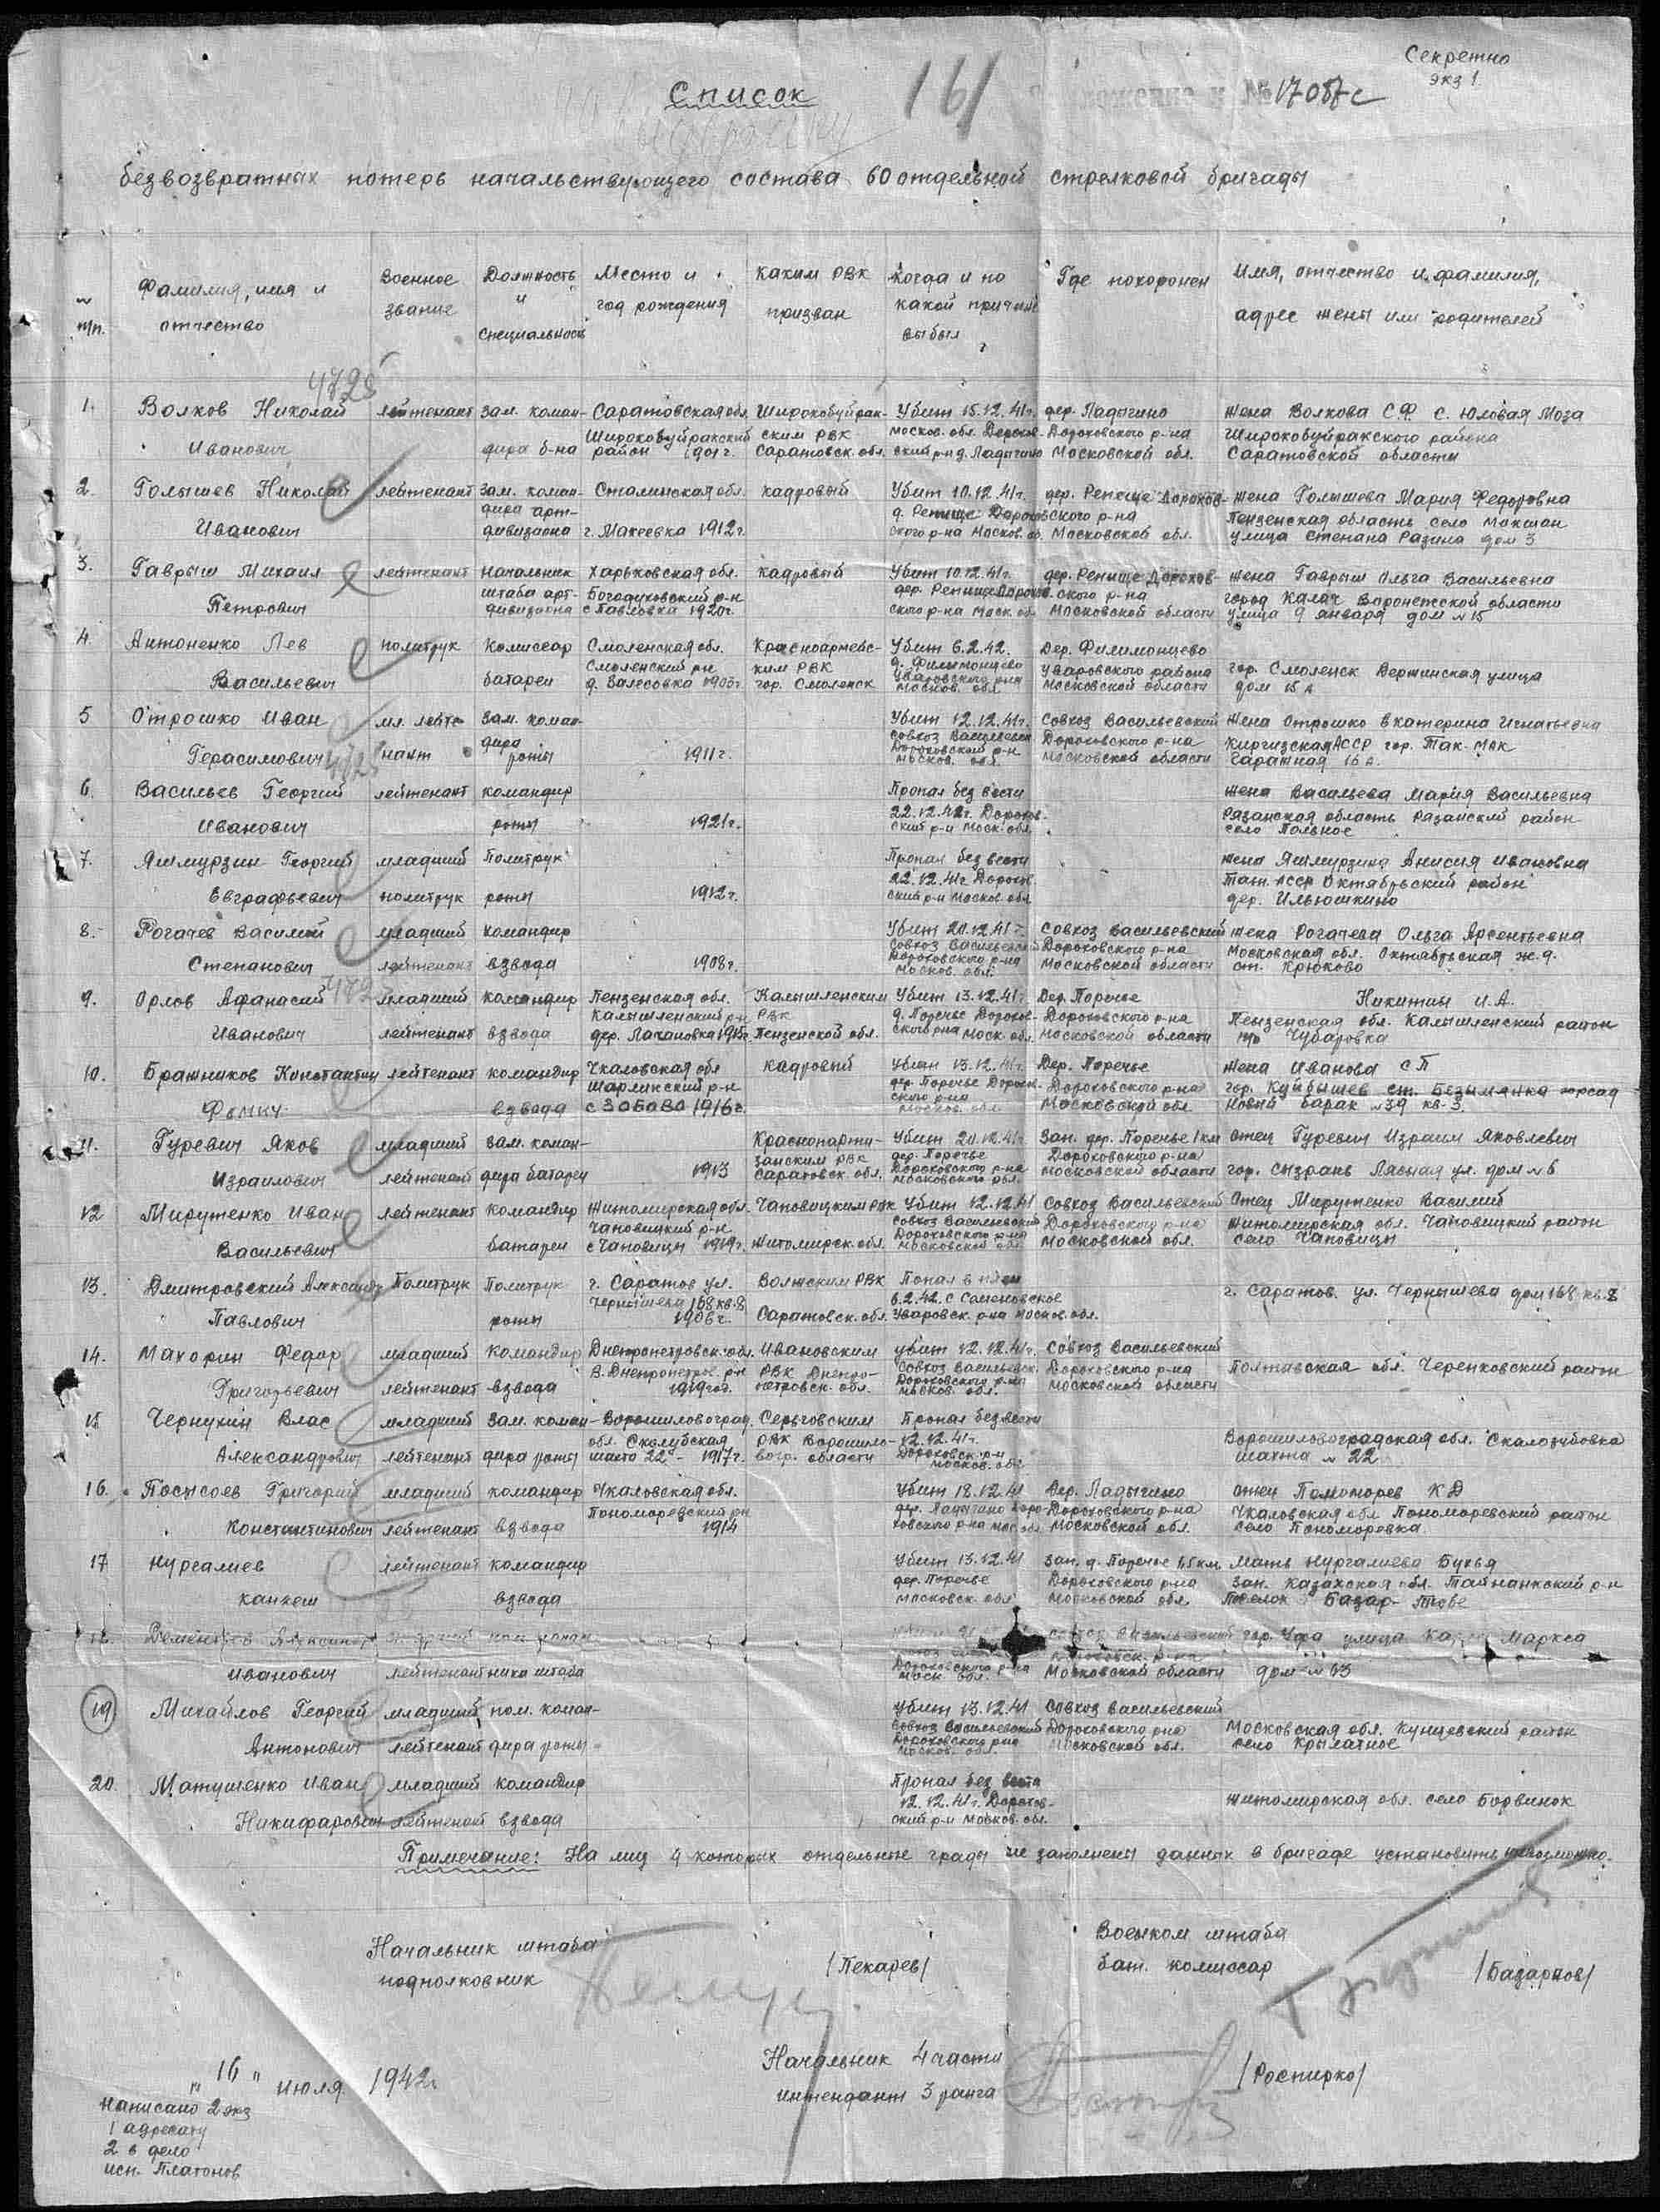 Секретно
экз 1
Список
161
№ 17087с
безвозвратных потерь начальствующего состава 60 отдельной стрелковой бригады
№ п/п.
Фамилия, имя и отчество
Военное звание
Должность и специальность
Место и год рождения
Каким РВК призван
Когда и по какой причине выбыл
Где похоронен
Имя, отчество и фамилия, адрес жены или родителей
4725
1. Волков Николай лейтенант зам. коман- Саратовская обл. Широкобуйрак- Убит 15.12.41г. дер. Ладыгино жена Волкова С.Ф. с. Юловая Маза
Иванович дира б-на Широкобуйракский район 1901г. ским РВК Саратовск. обл. Москов. обл. Дорохов- ский р-н д. Ладыгино Дороховского р-на Московской обл. Широкобуйракского района Саратовской области
2. Голышев Николай лейтенант зам. коман- Сталинская обл. кадровый Убит 10.12.41г. дер. Репище Дорохов- жена Голышева Мария Федоровна
Иванович дира арт- дивизиона г. Макеевка 1912г. д. Репище Дорохов- ского р-на Москов. об. ского р-на Московской обл. Пензенская область село Мокшан улица Степана Разина дом 3
3. Гавриш Михаил лейтенант Начальник Харьковская обл. кадровый Убит 10.12.41г. дер. Репище Дорохов- жена Гавриш Ольга Васильевна
Петрович штаба арт- дивизиона Богодуховский р-н с Павловка 1920г. дер. Репище Дорохов- ского р-на Моск. об. ского р-на Московской области город Калач Воронежской области улица 9 января дом №15
4. Антоненко Лев политрук Комиссар Смоленская обл. Красноармейс- Убит 6.2.42. Дер. Филимонцево
Васильевич батареи Смоленский рн д. Залесовка 1903г. ким РВК гор. Смоленск д. Филимонцево Уваровского р-на Москов. обл. Уваровского района Московской области гор. Смоленск Вержинская улица дом 15 А
5 Отрошко Иван мл. лейте- зам. коман- Убит 12.12.41г. Совхоз Васильевский жена Отрошко Екатерина Игнатьевна
Герасимович нант дира роты 1911г. совхоз Васильевск Дороховский р-н Москов. обл. Дороховского р-на Московской области Киргизская АССР гор. Так-мак Гаражная 16 а.
6. Васильев Георгий лейтенант командир Пропал без вести жена Васильева Мария Васильевна
Иванович роты 1921г. 22.12.41г. Дорохов- ский р-н Моск. обл. Рязанская область Рязанский район село Польное
7. Яшмурзин Георгий младший Политрук Пропал без вести жена Яшмурзина Анисия Ивановна
Евграфьевич политрук роты 1912г. 22.12.41г. Дорохов- ский р-н Москов. обл Тат. АССР Октябрьский район дер. Ильюшкино
8. Рогачев Василий младший командир Убит 20.12.41г. Совхоз Васильевский жена Рогачева Ольга Арсентьевна
Степанович лейтенант взвода 1908г. совхоз Васильевский Дороховского р-на Москов. обл. Дороховского р-на Московской области Московская обл. Октябрьская ж.д. ст. Крюково
9. Орлов Афанасий младший командир Пензенская обл. Камышленским Убит 13.12.41г. Дер. Поречье Никитин И.А.
Иванович лейтенант взвода Камышленский р-н дер. Лачановка 1915г. РВК Пензенской обл. д. Поречье Дорохов- ского р-на Моск. об. Дороховского р-на Московской области Пензенская обл. Камышленский район Чубаровка
10. Бражников Константин лейтенант командир Чкаловская обл кадровый Убит 13.12.41г. Дер. Поречье жена Иванова С П
Фомич взвода Шарлыкский р-н 1916г. дер. Поречье Дорохов- ского р-на Москов. обл. Дороховского р-на Московской обл гор. Куйбышев ст. Безымянка новый барак №39 кв-3.
11. Гуревич Яков младший зам. коман- Краснопарти- Убит 20.12.41г. Зап. дер. Поречье 1 км отец Гуревич Израиль Яковлевич
Израилович лейтенант дира батареи 1913 занским РВК Саратовск. обл. дер. Поречье Дороховского р-на Московской обл. Дороховского р-на Московской области гор. Сызрань Лясная ул. дом №6
12 Мирутенко Иван лейтенант командир Житомирская обл. Чаповицким РВК Убит 12.12.41 Совхоз Васильевский Отец Мирутенко Василий
Васильевич батареи Чаповицкий р-н с Чаповицы 1919г. Житомирск. обл. совхоз Васильевский Дороховского р-на Московской обл. Дороховского р-на Московской обл. Житомирская обл. Чаповицкий район село Чаповицы
13. Дмитровский Александр Политрук Политрук г. Саратов ул. Волжским РВК Попал в плен
Павлович роты Чернышева 168 кв. 8 1906г. Саратовск. обл. 6.2.42. с Семеновское Уваровск. р-на Москов. обл. г. Саратов. ул. Чернышева дом 168 кв. 8
14. Махорин Федор младший командир Днепропетровск. обл. Ивановским убит 12.12.41г. Совхоз Васильевский
Григорьевич лейтенант взвода В. Днепропетров. р-н 1919год. РВК Днепро- петровск. обл. Совхоз Васильевск. Дороховского р-на Москов. обл. Дороховского р-на Московской области Полтавская обл. Черенковский район
15 Чернухин Влас младший зам. коман- Ворошиловоград. Серговским Пропал без вести
Александрович лейтенант дира роты обл. Скелубская шахта 22 - 1917г. РВК Ворошило- вогр. области 12.12.41г. Дороховск. р-н Москов. обл Ворошиловоградская обл. Скалозубовка шахта № 22
16. Посысоев Григорий младший командир Чкаловская обл. Убит 18.12.41 Дер. Ладыгино отец Пономорев К Д
Константинович лейтенант взвода Пономоревский рн 1914 дер. Ладыгино Доро- ховского р-на Мос. обл. Дороховского р-на Московской обл. Чкаловская обл Пономоревский район село Пономоревка.
17 Нургалиев лейтенант командир Убит 13.12.41 Зап. д. Поречье 1.5 км. Мать Нургалиева Бухья
Канкеш взвода дер. Поречье Московск. обл. Дороховского р-на Московской обл. Зап. Казахская обл. Тайпанкский р-н Поселок Базар-Тюбе
18. Дементьев гор. Уфа улица Карла Маркса
Иванович лейтенант ника штаба Дороховского р-на Моск. обл. Московской области дом № 63
19 Михайлов Георгий младший пом. коман- Убит 13.12.41 Совхоз Васильевский
Антонович лейтенант дира роты Совхоз Васильевский Дороховского р-на Москов. обл. Дороховского р-на Московской обл. Московская обл. Кунцевский район село Крылатское
20. Матушенко Иван младший командир Пропал без вести
Никифарович лейтенант взвода 12.12.41г. Дорохов- ский р-н Москов. обл. Житомирская обл. село Борвинок
Примечание: На лиц у которых отдельные графы не заполнены данных в бригаде установить невозможно.
Начальник штаба
подполковник /Пекарев/
Военком штаба
бат. комиссар /Базарнов/
Начальник 4 части
интендант 3 ранга /Роспирко/
„16" июля 1942г
Написано 2 экз
1 адресату
2 в дело
исп. Платонов